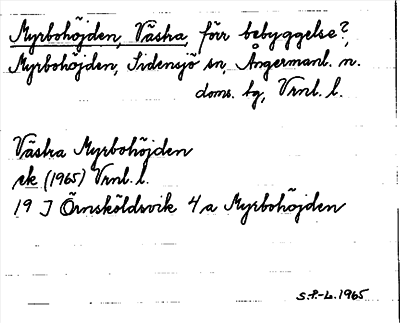 Myrbohöjden, Västra, förr bebyggelse?,
Myrbohöjden, Sidensjö sn, Ångermanl. n.
doms. bg, Vrnl. l.
Västra Myrbohöjden
ek (1965) Vrnl. l.
19 J Örnsköldsvik 4 a Myrbohöjden
S.F.-L. 1965